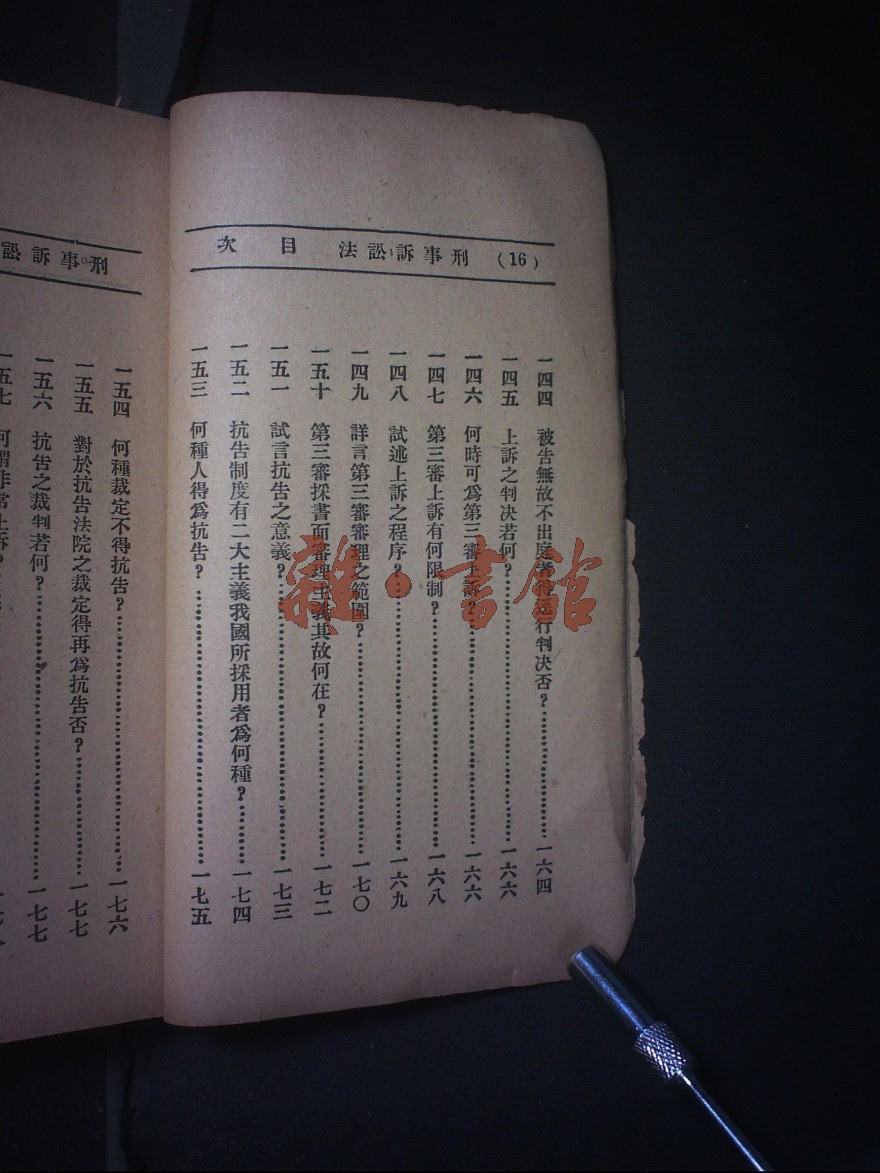 (16) 刑事訴訟法 目次
一四四 被告無故不出庭者得逕行判決否?……一六四
一四五 上訴之判決若何?……一六六
一四六 何時可為第三審上訴?……一六六
一四七 第三審上訴有何限制?……一六八
一四八 試述上訴之程序?……一六九
一四九 詳言第三審審理之範圍?……一七〇
一五十 第三審採書面審理主義其故何在?……一七二
一五一 試言抗告之意義?……一七三
一五二 抗告制度有二大主義我國所採用者為何種?……一七四
一五三 何種人得為抗告?……一七五
刑事訴訟
一五四 何種裁定不得抗告?……一七六
一五五 對於抗告法院之裁定得再為抗告否?……一七七
一五六 抗告之裁判若何?……一七七
一五七 何謂非常上訴?
雜·書館